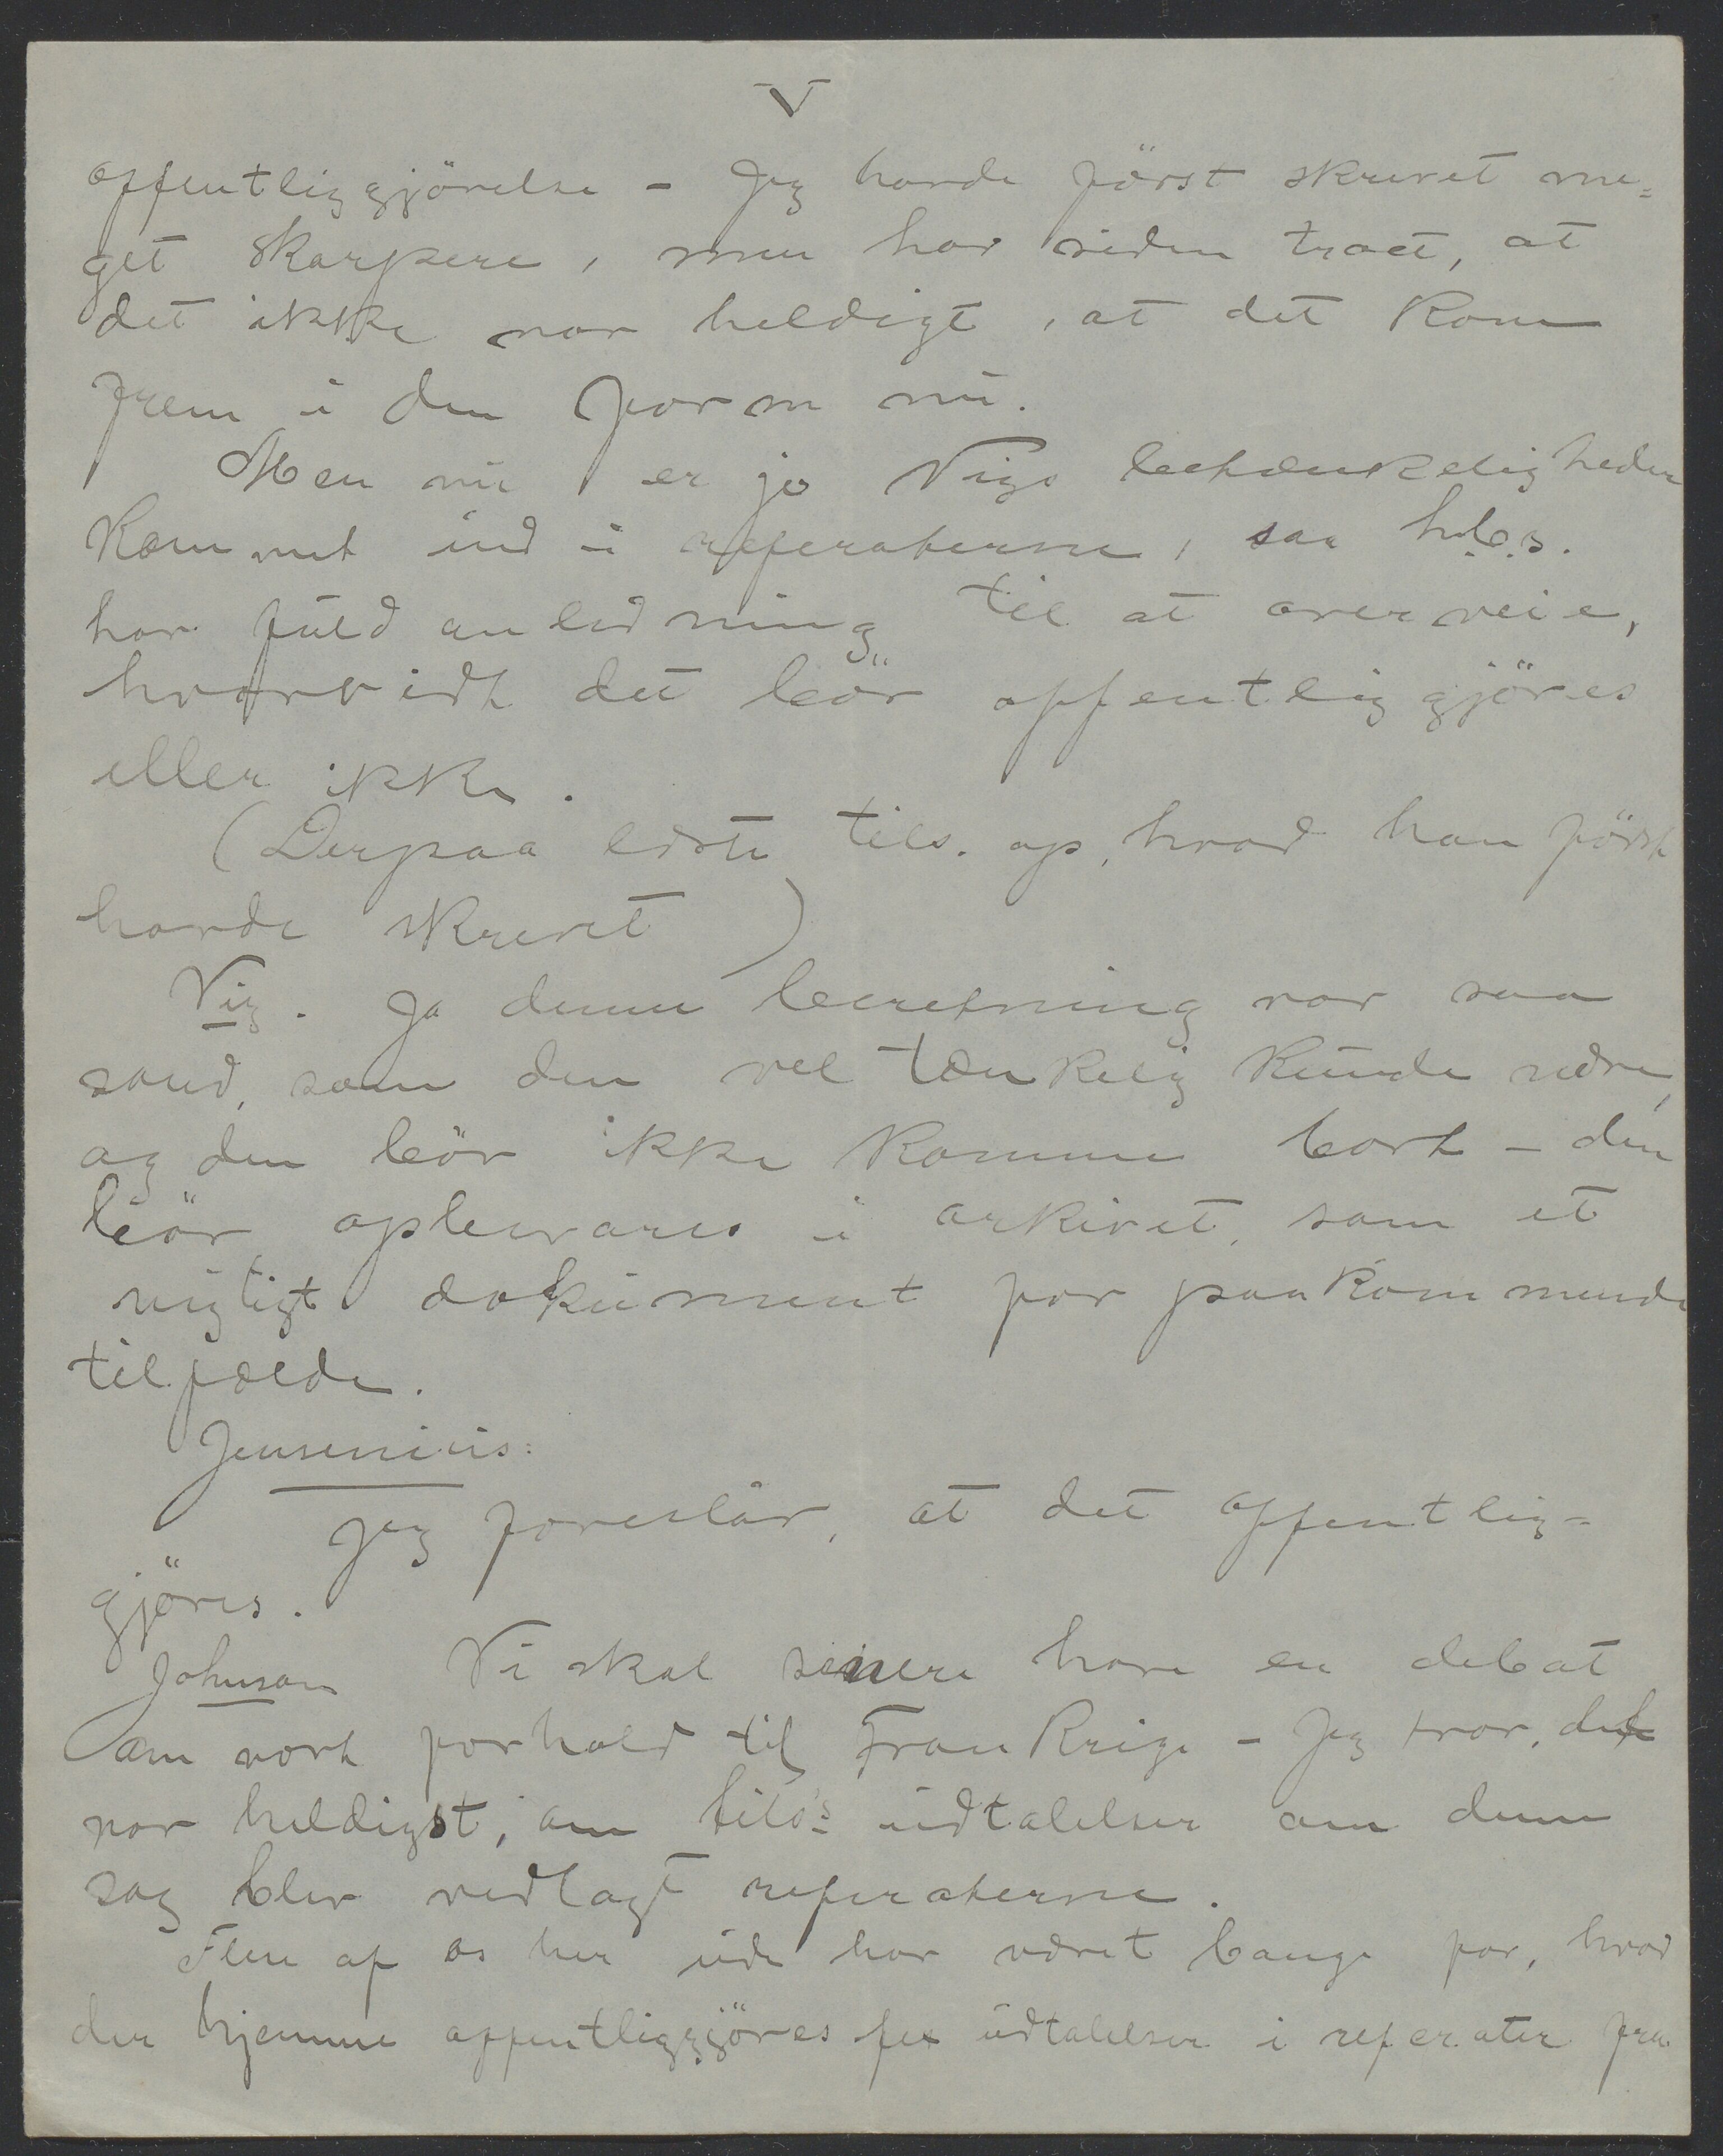 V
offentliggjörelse - Jeg havde först skrevet me=
get skarpere, men har siden troet, at
det ikke var heldigt, at det kom
frem i den form nu.
Men nu er jo Vigs betænkeligheder
kommet ind i referaterne, saa h.b.s.
har fuld anledning til at overveie,
hvorvidt det bör offentliggjöres
eller ikke.
(Derpaa læste tils. op, hvad han först
havde skrevet)
Vig. Ja denne beretning var saa
sand, som den vel tænkelig kunde være,
og den bör ikke komme bort - den
bör opbevares i arkivet, som et
vigtigt dokument for paakommende
tilfælde.
Jensenius:
Jeg foreslår, at det offentlig=
gjöres.
Johnson Vi skal senere have en debat
om vort forhold til Frankrige - Jeg tror, det
var heldigst, om tils's udtalelser om denne
sag blev vedlagt referaterne.
Flere af os her ude har været bange for, hvad
der hjemme offentliggjöres fex udtalelser i referater fra